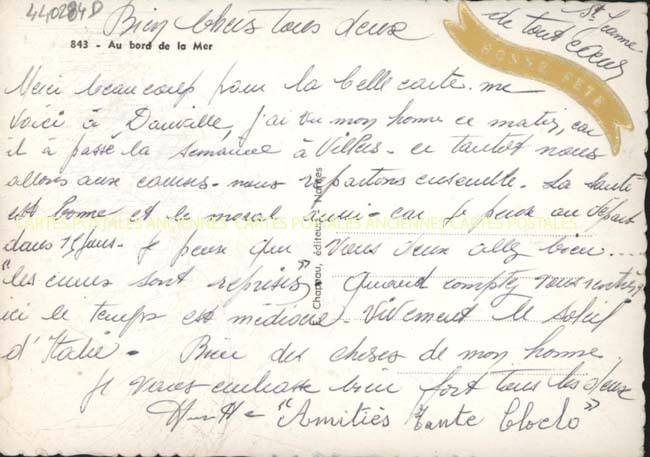 440284D
Bien chers tous deux
St Jeanne
de tout cœur
BONNE FÊTE
843 - Au bord de la Mer
Merci beaucoup pour la belle carte. me
voici à Dauville, j'ai vu mon homme ce matin, car
il a passé la semaine à Villers - ce tantôt nous
allons aux courses - nous repartons ensemble. La santé
est bonne et le moral aussi - car je pense au départ
dans 15 jours - Je pense que vous deux allez bien ....
"les cures sont reprises" Quand comptez vous rentrer,
ici le temps est médiocre. Vivement le soleil
d'Italie - Bien des choses de mon homme
Je vous embrasse bien fort tous les deux
"Amitiés Tante Cloclo"
Chapeau, éditeur, Nantes
CARTES POSTALES ANCIENNES CARTES POSTALES ANCIENNES CARTES POSTALES